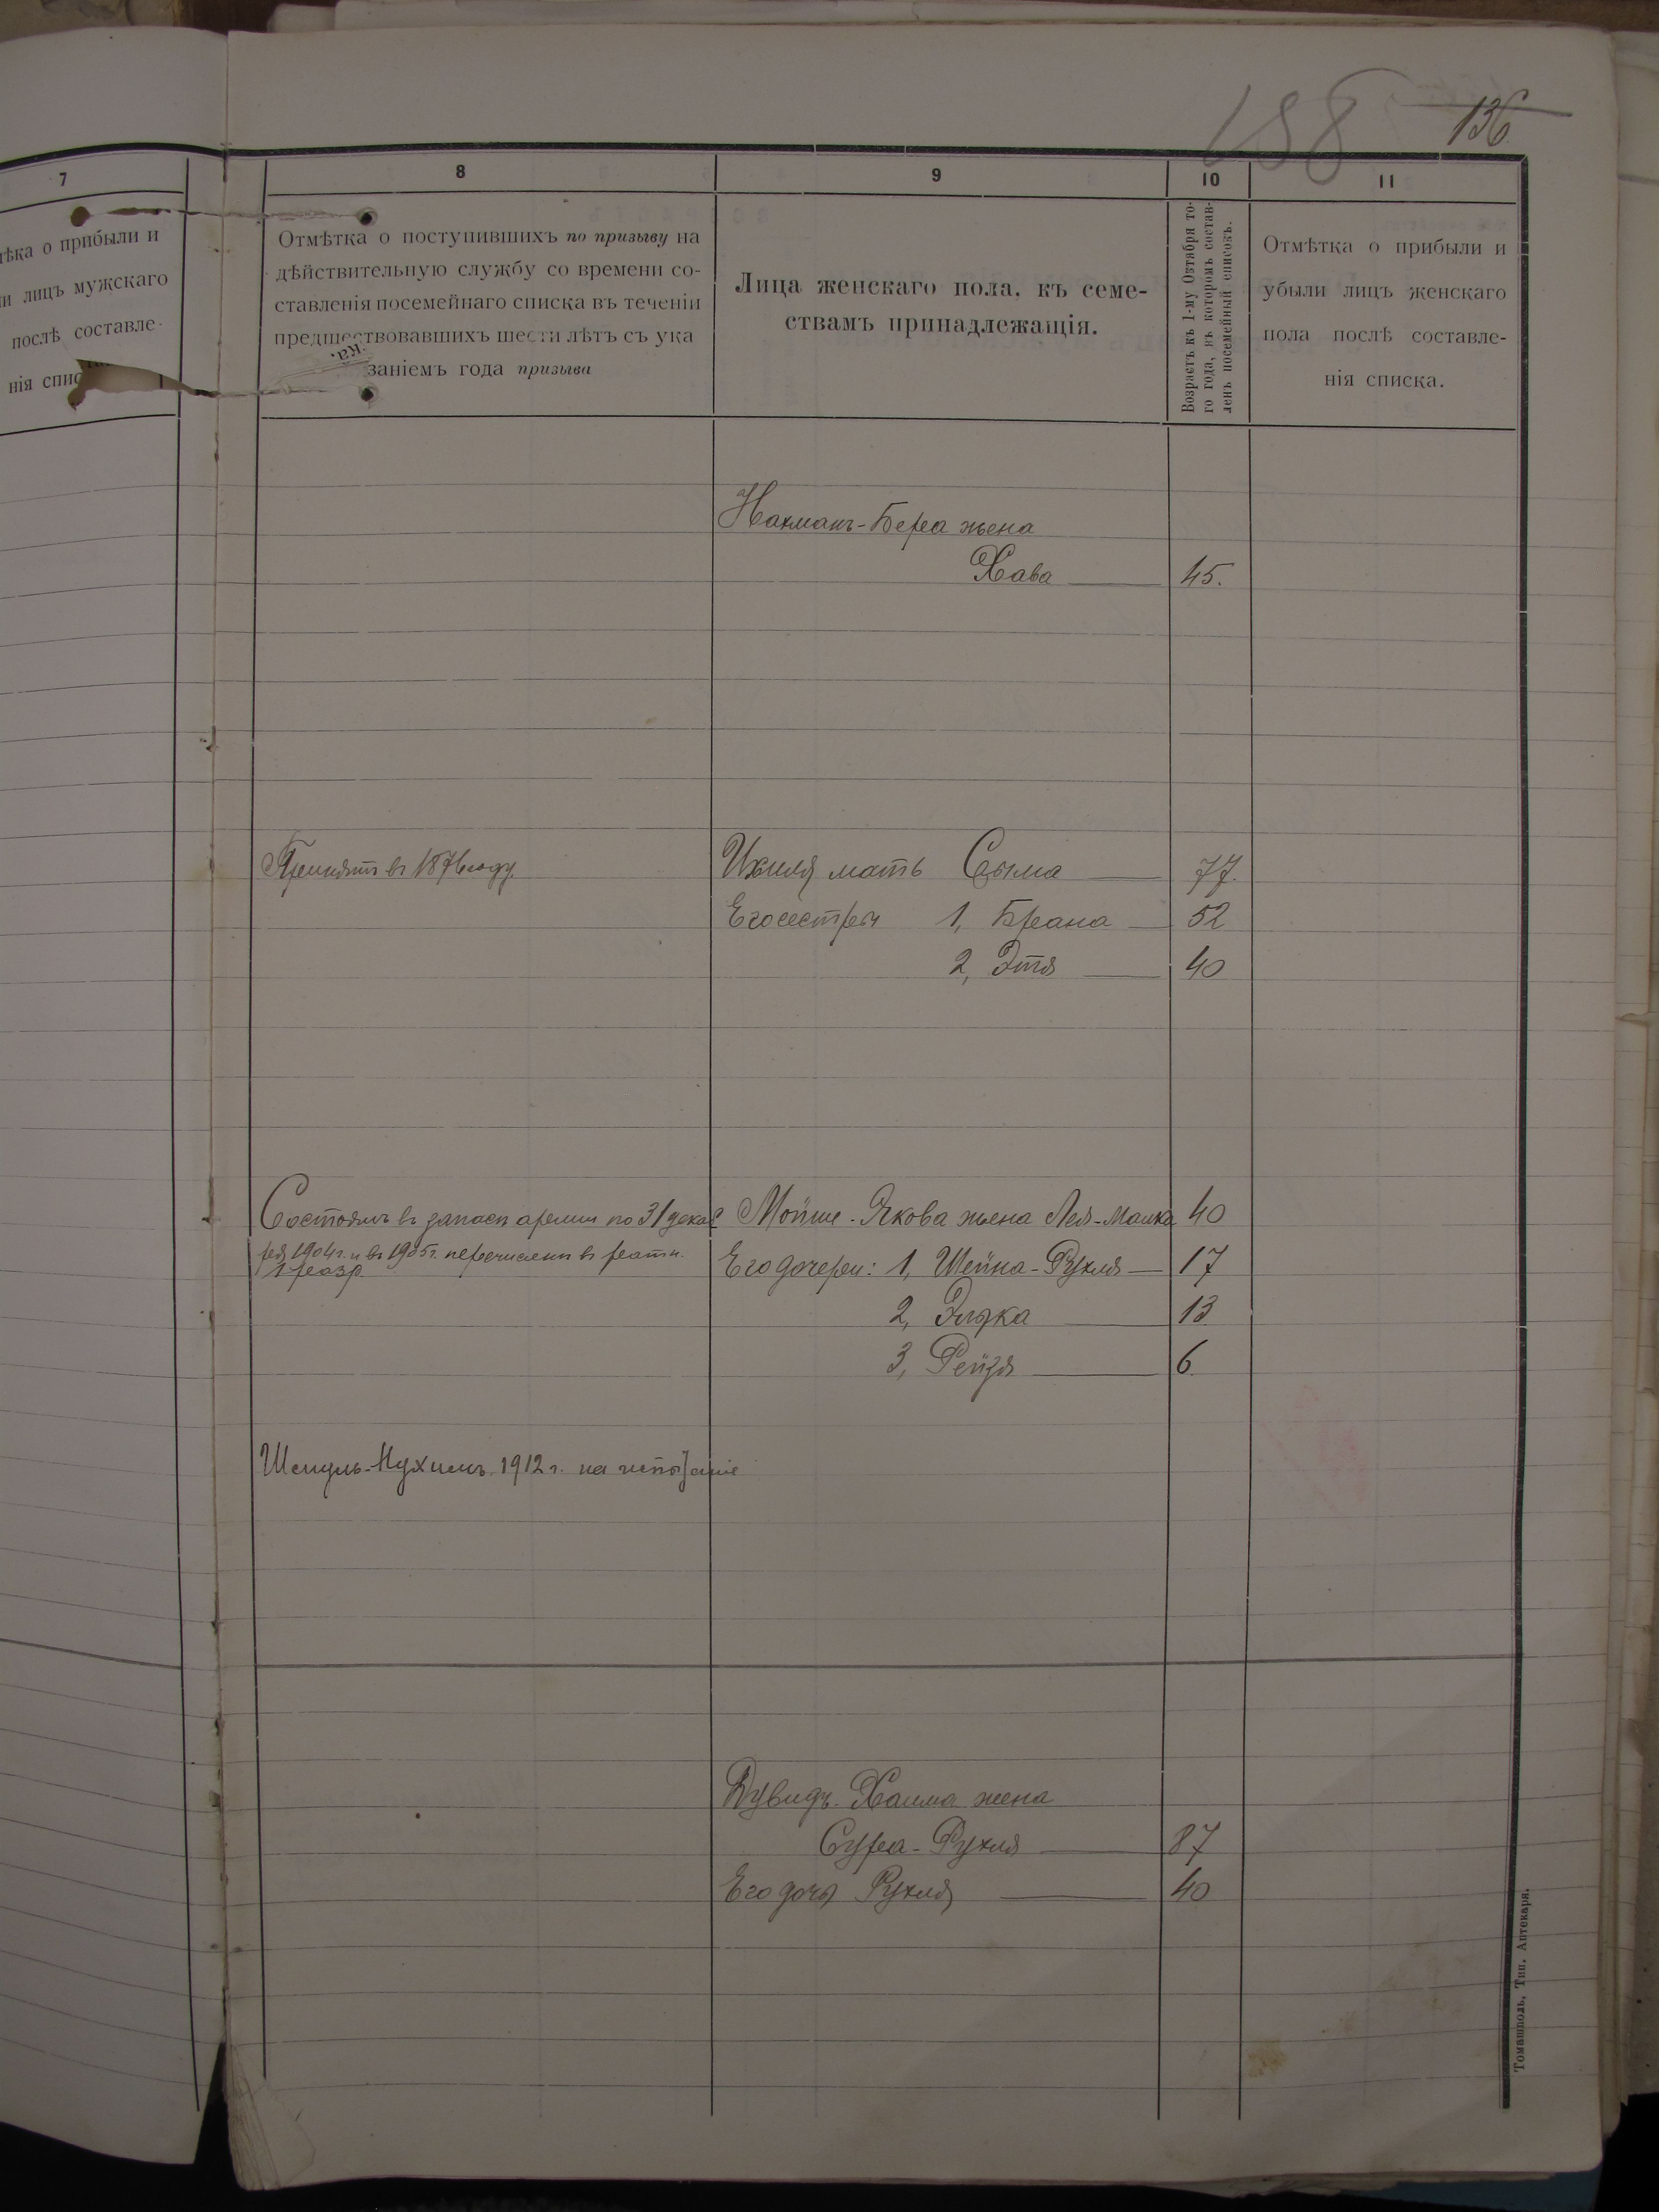 188 136
7
8
9
10
11
тѣка о прибыли и
и лицъ мужскаго
послѣ составле-
нія спис
Отмѣтка о поступившихъ по призыву на
дѣйствительную службу со времени со-
ставленія посемейнаго списка въ теченіи
предшествовавшихъ шести лѣтъ съ ука
заніемъ года призыва
Лица женскаго пола, къ семе-
ствамъ принадлежащія.
Возрастъ къ 1-му Октября то-
го года, въ которомъ состав-
ленъ посемейный списокъ.
Отмѣтка о прибыли и
убыли лицъ женскаго
пола послѣ составле-
нія списка.
Нахманъ-Бера жена
Хава 45.
Принятъ въ 1876 году
Ихиля мать Сыма 77.
Его сестры 1, Бреана 52
2, Этя 40
Состоялъ въ запасѣ арміи по 31 декаб
ря 1904 г. и въ 1905 г. перечисленъ въ ратн.
1 разр
Мойше-Якова жена Лея-Малка 40
Его дочери: 1, Шейна-Рухля 17
2, Элька 13
3, Рейзя 6.
Шмуль-Нухимъ 1912 г. на испытаніе
Дувидъ-Хаима жена
Сура-Рухля 87
Его дочь Рухля 40
Томашполь, Тип. Аптекаря.